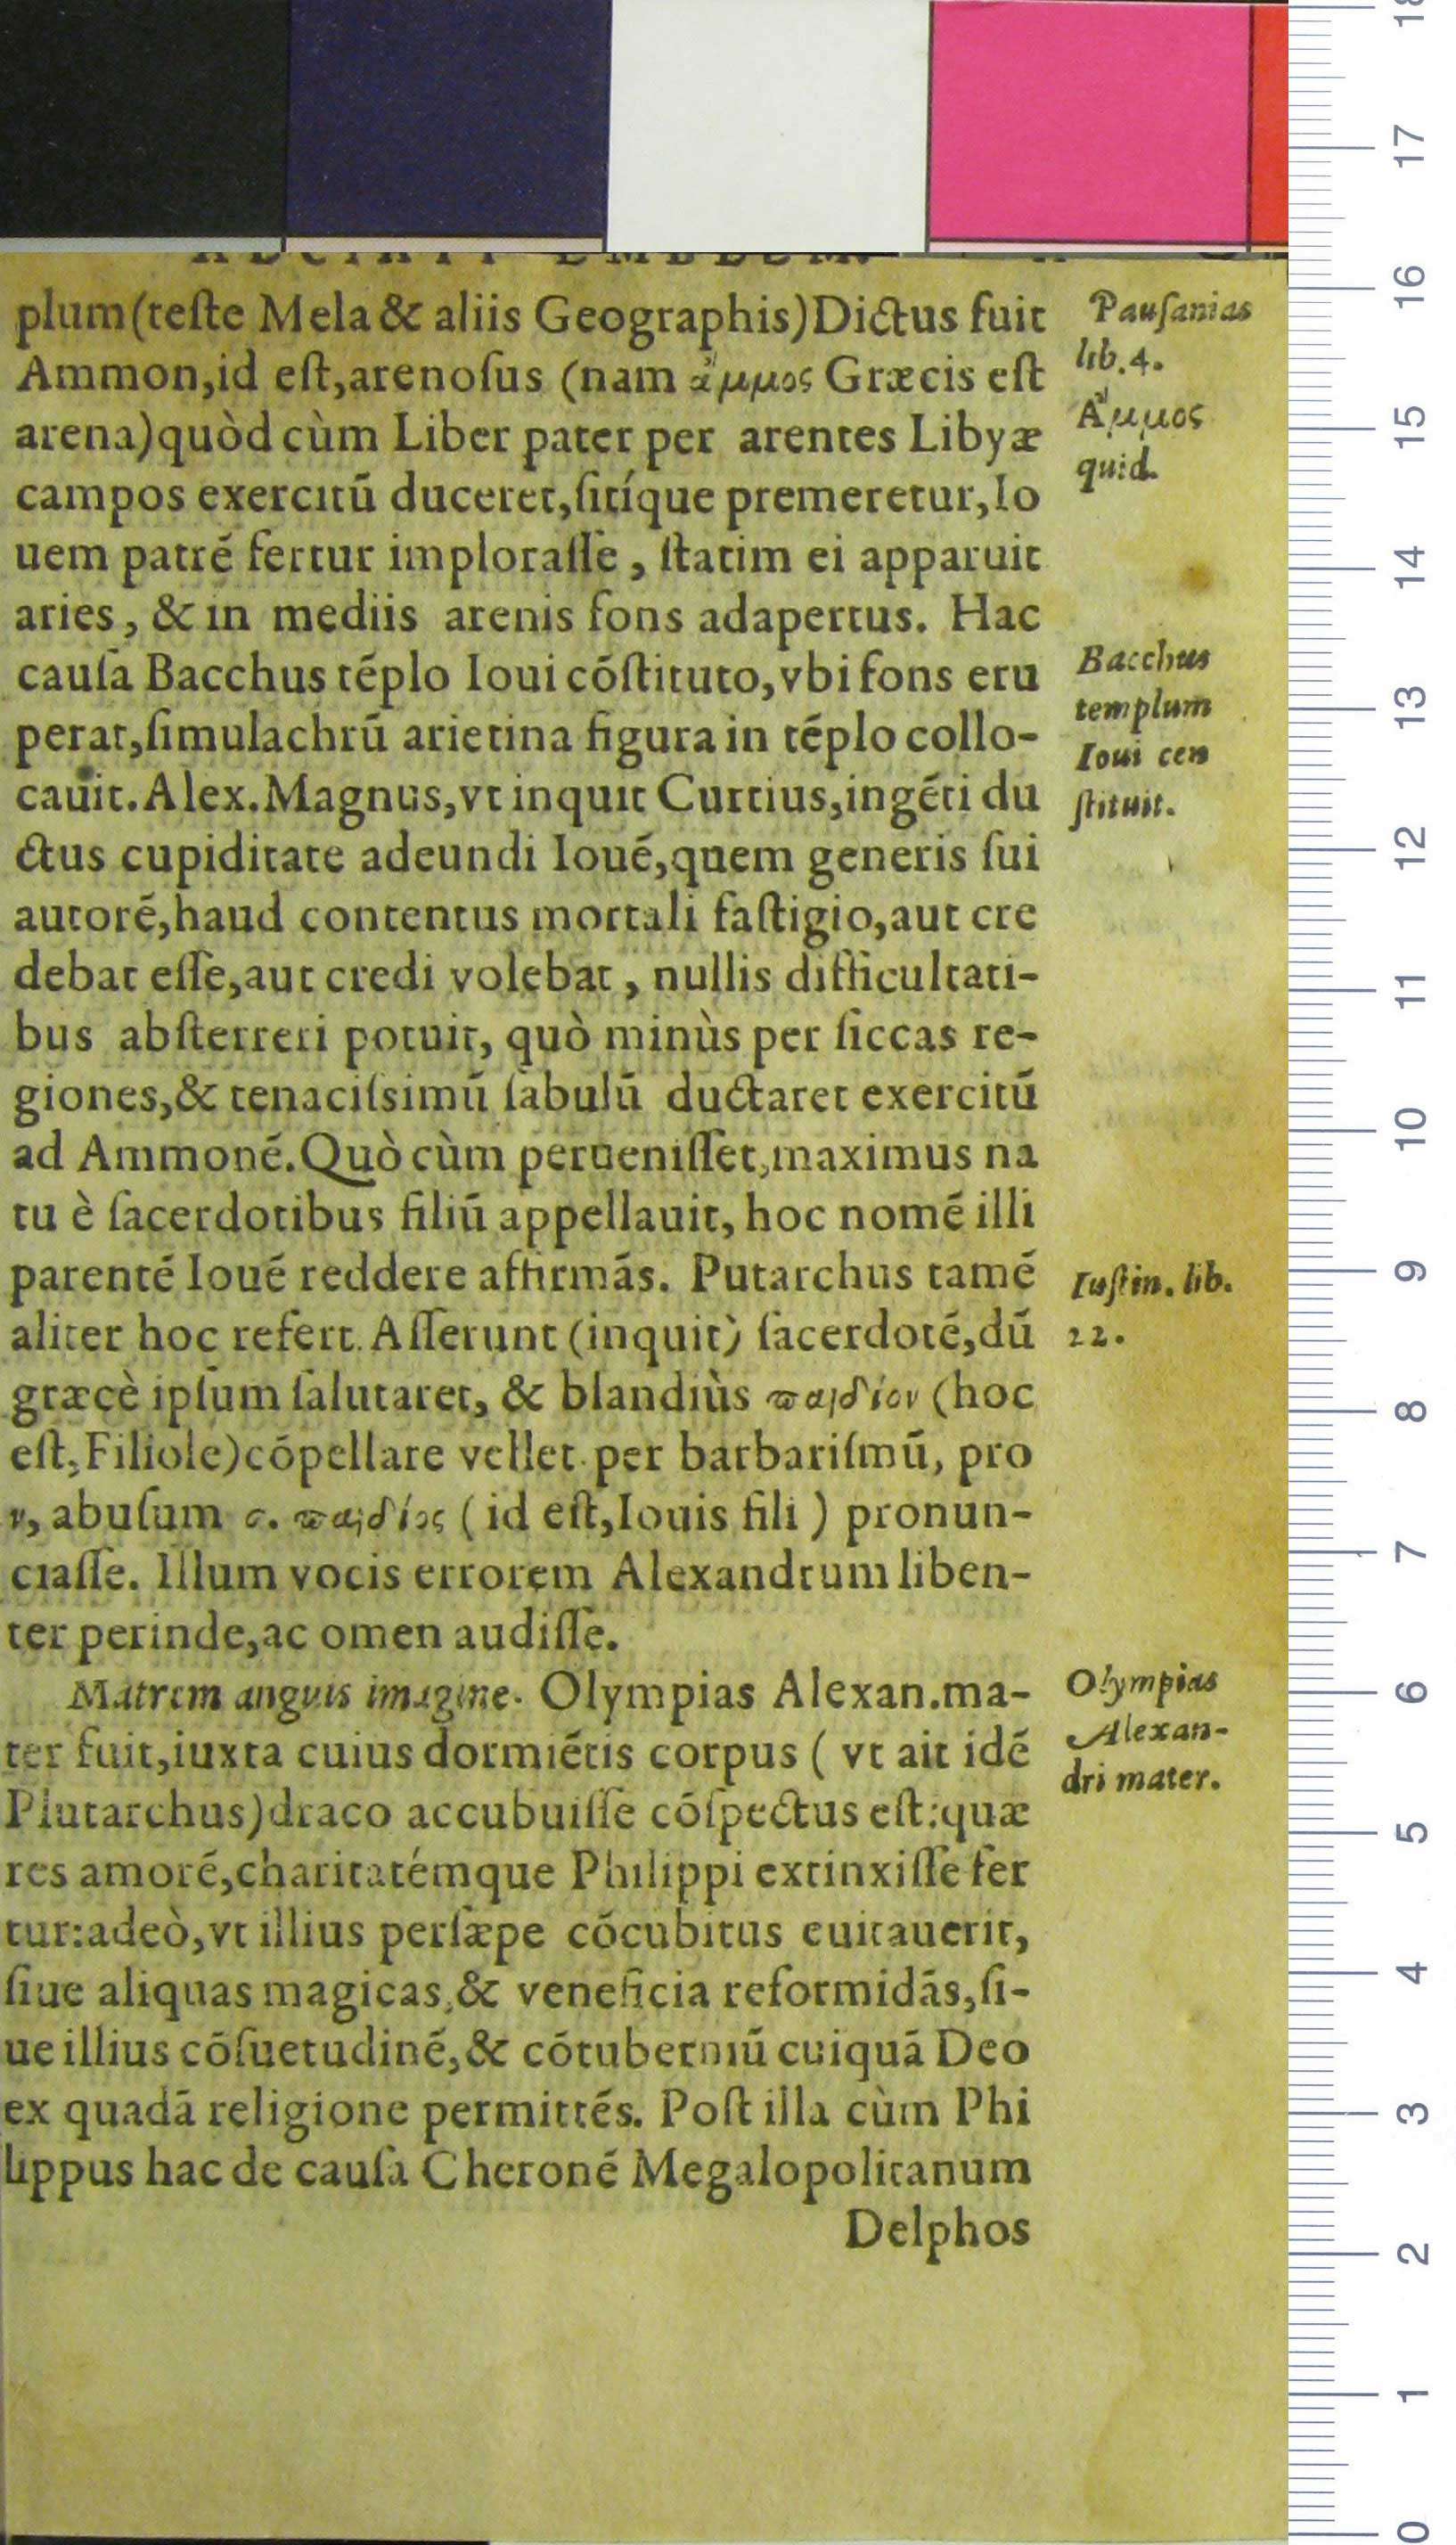 plum(teſte Mela & aliis Geographis)Dictus fuit
Ammon,id eſt,arenoſus (nam ἄμμος Græcis eſt
arena)quòd cùm Liber pater per arentes Libyæ
campos exercitū duceret,ſitíque premeretur,Io
uem patrē fertur imploraſſe , ſtatim ei apparuit
aries, & in mediis arenis fons adapertus. Hac
cauſa Bacchus tēplo Ioui cōſtituto,vbi fons eru
perat,ſimulachrū arietina figura in tēplo collo-
cauit.Alex.Magnus,vt inquit Curtius,ingēti du
ctus cupiditate adeundi Iouē,quem generis ſui
autorē,haud contentus mortali faſtigio,aut cre
debat eſſe,aut credi volebat , nullis difficultati-
bus abſterreri potuit, quò minùs per ſiccas re-
giones,& tenaciſsimū ſabulū ductaret exercitū
ad Ammonē.Quò cùm perueniſſet,maximus na
tu è ſacerdotibus filiū appellauit, hoc nomē illi
parentē Iouē reddere affirmās. Putarchus tamē
aliter hoc refert. Aſſerunt (inquit) ſacerdotē,dū
græcè ipſum ſalutaret, & blandiùs παιδίον (hoc
eſt,Filiole)cōpellare vellet per barbariſmū, pro
ν, abuſum ς. παιδίος ( id eſt,Iouis fili ) pronun-
ciaſſe. Illum vocis errorem Alexandrum liben-
ter perinde,ac omen audiſſe.
Matrem anguis imagine. Olympias Alexan.ma-
ter fuit,iuxta cuius dormiētis corpus ( vt ait idē
Plutarchus)draco accubuiſſe cōſpectus eſt:quæ
res amorē,charitatémque Philippi extinxiſſe fer
tur:adeò,vt illius perſæpe cōcubitus euitauerit,
ſiue aliquas magicas,& veneficia reformidās,ſi-
ue illius cōſuetudinē,& cōtuberniū cuiquā Deo
ex quadā religione permittēs. Poſt illa cùm Phi
lippus hac de cauſa Cheronē Megalopolitanum
Delphos
Pauſanias
lib.4.
Ἄμμος
quid.
Bacchus
templum
Ioui con
ſtituit.
Iuſtin. lib.
22.
Olympias
Alexan-
dri mater.
18
17
16
15
14
13
12
11
10
9
8
7
6
5
4
3
2
1
0